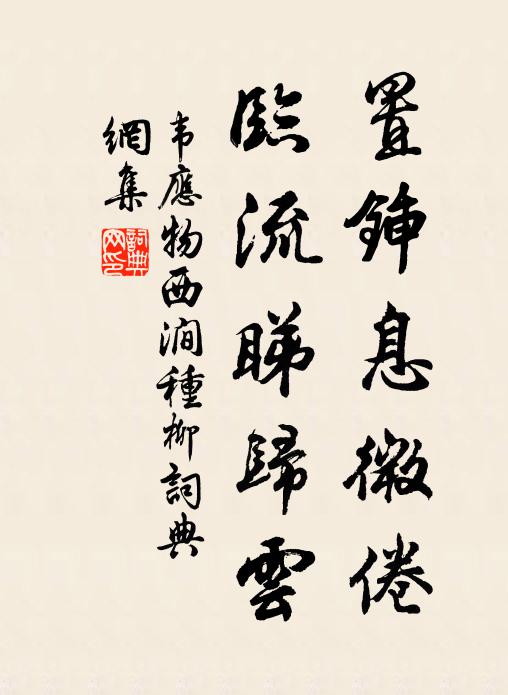 置鍤息微倦
臨流睇歸雲
韦應物西澗種柳詞典
網集
詞典
网印